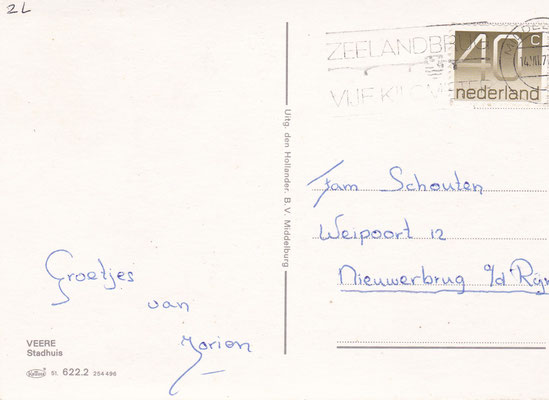 2L
ZEELANDBRUG
VIJF KILOMETER
40 c
nederland
Uitg. den Hollander, B.V. Middelburg
Fam Schouten
Weipoort 12
Nieuwerbrug a/d Rijn
Groetjes
van
Jorien
VEERE
Stadhuis
51. 622.2 254496